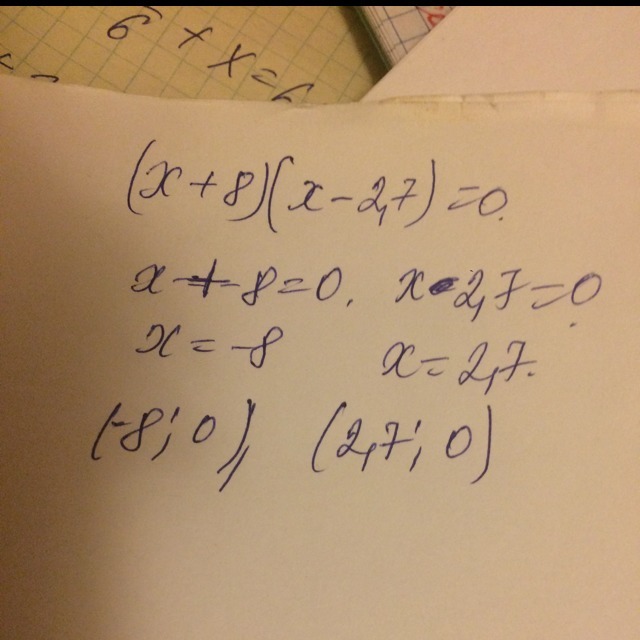 6 + x = 6
(x + 8)(x - 2,7) = 0.
x + 8 = 0. x - 2,7 = 0.
x = -8 x = 2,7.
(-8; 0), (2,7; 0)